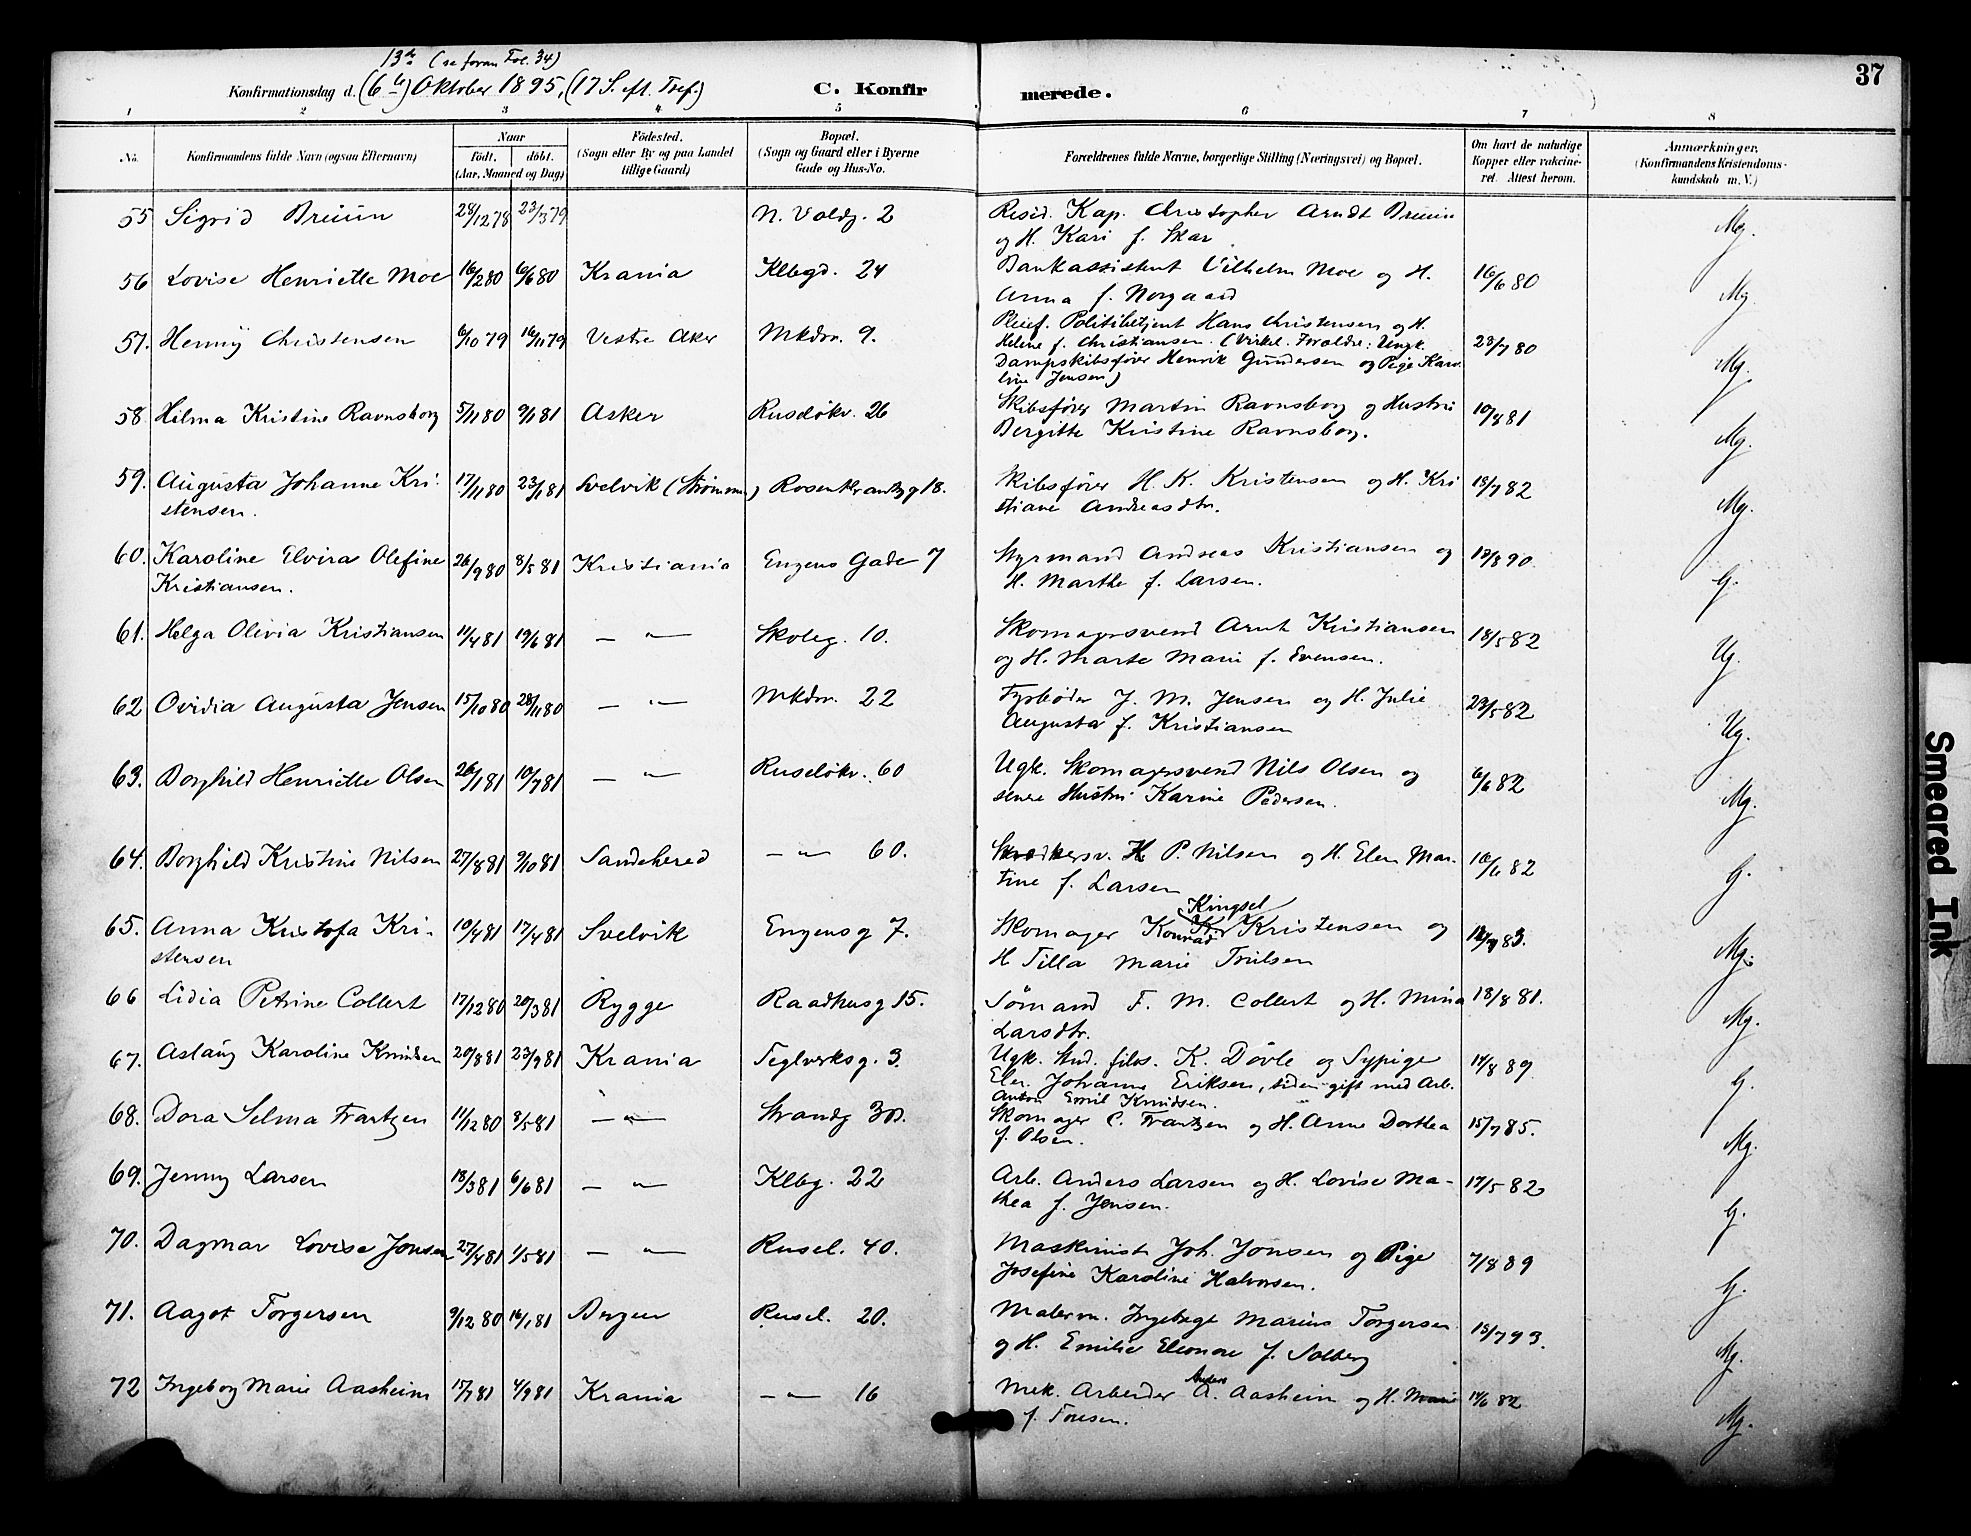 13de (se foran Fol. 34)
Konfirmationsdag d. (6te) Oktober 1895, (17 S. eft. Tref.)
C. Konfir merede.
37
1 2 3 4 5 6 7 8
No. Konfirmandens fulde Navn (ogsaa Efternavn) Naar født. døbt. (Aar, Maaned og Dag) Fødested. (Sogn eller By og paa Landet tillige Gaard) Bopæl. (Sogn og Gaard eller i Byerne Gade og Hus-No. Forældrenes fulde Navne, borgerlige Stilling (Næringsvei) og Bopæl. Om havt de naturlige Kopper eller vakcineret. Attest herom. Anmærkninger. (Konfirmandens Kristendomskundskab m. V.)
55 Sigrid Bruun 28/12 78 23/3 79 N. Voldg. 2 Resid. Kap. Christopher Arndt Bruun Mg.
og H. Kari f. Skar
56 Lovise Henriette Moe 16/2 80 6/6 80 Krania Klbgd. 24 Bankassistent Vilhelm Moe og H. 16/6 80 Mg.
Anna f. Norgaard
57. Henny Christensen 6/10 79 16/11 79 Vestre Aker Mkdvn. 9. Pleief. Politibetjent Hans Christensen og H.
Helene f. Christiansen. (Virkel. Forældre: Ungk. 28/7 80 Mg.
Dampskibsfører Henrik Gundersen og Pige Karo-
line Jensen)
58. Hilma Kristine Ravnsborg 5/11 80 9/1 81 Asker Ruseløkv. 26 Skibsfører Martin Ravnsborg og Hustru 10/8 81 Mg.
Bergitte Kristine Ravnsborg.
59. Augusta Johanne Kri- 17/11 80 23/1 81 Svelvik (Strømmen) Rosenkrantzg 18. Skibsfører H. K. Kristensen og H. Kri 18/7 82 Mg.
stensen. stiane Andreasdtr.
60. Karoline Elvira Olefine 26/9 80 8/5 81 Kristiania Engens Gade 7 Styrmand Andreas Kristiansen og G.
Kristiansen. H. Marthe f. Larsen.
61. Helga Olivia Kristiansen 11/4 81 19/6 81 — " — Skoleg. 10. Skomagersvend Arnt Kristiansen 18/5 82 Ug.
og H. Marte Marie f. Evensen.
62 Ovidia Augusta Jensen 15/10 80 28/11 80 — " — Mkdvn. 22 Fyrbøder J. M. Jensen og H. Julie 23/5 82 Ug.
Augusta f. Kristiansen
63. Borghild Henriette Olsen 26/1 81 10/7 81 — " — Ruseløkv. 60 Ugk. Skomagersvend Nils Olsen og 6/6 82 Mg.
senere Hustru Karine Pedersen.
64. Borghild Kristine Nilsen 27/8 81 9/10 81 Sandeherred — " — 60. H. P. Nilsen og H. Elen Mar- 16/6 82 G.
tine f. Larsen
65. Anna Kristofa Kri- 10/4 81 17/4 81 Svelvik Engensg 7. Skomager Konrad Kingsel Kristensen og Mg.
stensen H Tilla Marie Trulsen
66 Lidia Petrine Collert 17/12 80 20/3 81 Rygge Raadhusg 15. Sømand F. M. Collert og H. Mina 18/8 81. Mg.
Larsdtr.
67. Aslaug Karoline Knudsen 20/8 81 23/9 81 Krania Teglverksg. 3. Ugk. Stud. filos. K. Døvle og Sypige 14/8 89 G.
Elen Johanne Eriksen, siden gift med Arb.
Anton Emil Knudsen.
68. Dora Selma Frantzen 11/12 80 8/5 81 — " — Strandg Skomager C. Frantzen og H. Anne Dorthea 15/7 85. Mg.
f. Olsen.
69. Jenny Larsen 18/3 81 6/6 81 — " — Klbg. 22 Arb. Anders Larsen og H. Lovise Ma- 17/5 82 G.
thea f. Jensen.
70. Dagmar Lovise Jonsen 27/4 81 1/5 81 — " — Rusel. 40. Maskinist Joh. Jonsen og Pige 7/8 89 G.
Josefine Karoline Halvorsen.
71. Aagot Torgersen 9/12 80 16/1 81 Bergen Rusel. 20. Malerm. Ingebregt Marius Torgersen 18/7 93. Mg.
og H. Emilie Eleonore f. Solberg
72 Ingeborg Marie Aasheim 15/7 81 4/9 81 Krania — " — 16 Mek. Arbeider A. Anders Aasheim og H. Marie 14/6 82 Mg.
f. Tonesen.
Smeared Ink